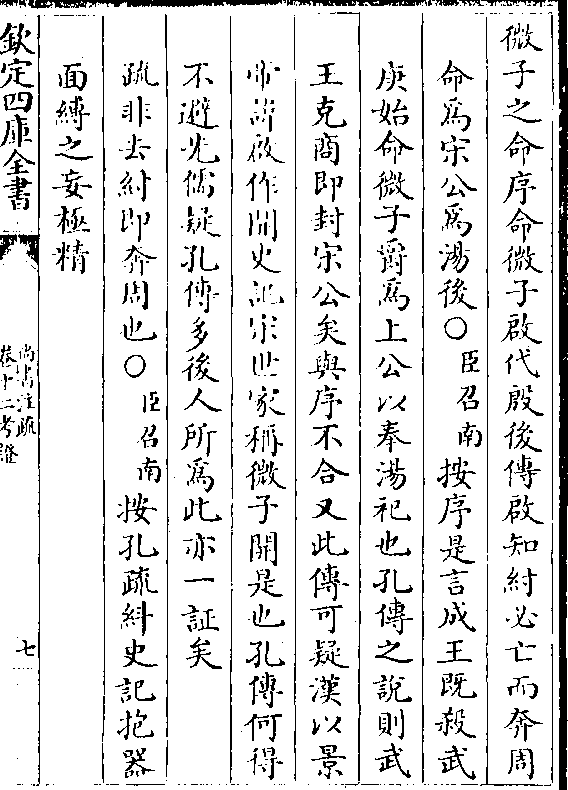 微子之命序命微子啟代殷後傳啟知紂必亡而奔周
命爲宋公爲湯後○臣召南按序是言成王旣殺武
庚始命微子爵爲上公以奉湯祀也孔傳之說則武
王克商即封宋公矣與序不合又此傳可疑漢以景
帝諱啟作開史記宋世家稱微子開是也孔傳何得
不避先儒疑孔傳多後人所爲此亦一証矣
疏非去紂即奔周也○臣召南按孔疏糾史記抱器
面縛之妄極精
欽定四庫全書
尚書注疏
卷十二考證
七